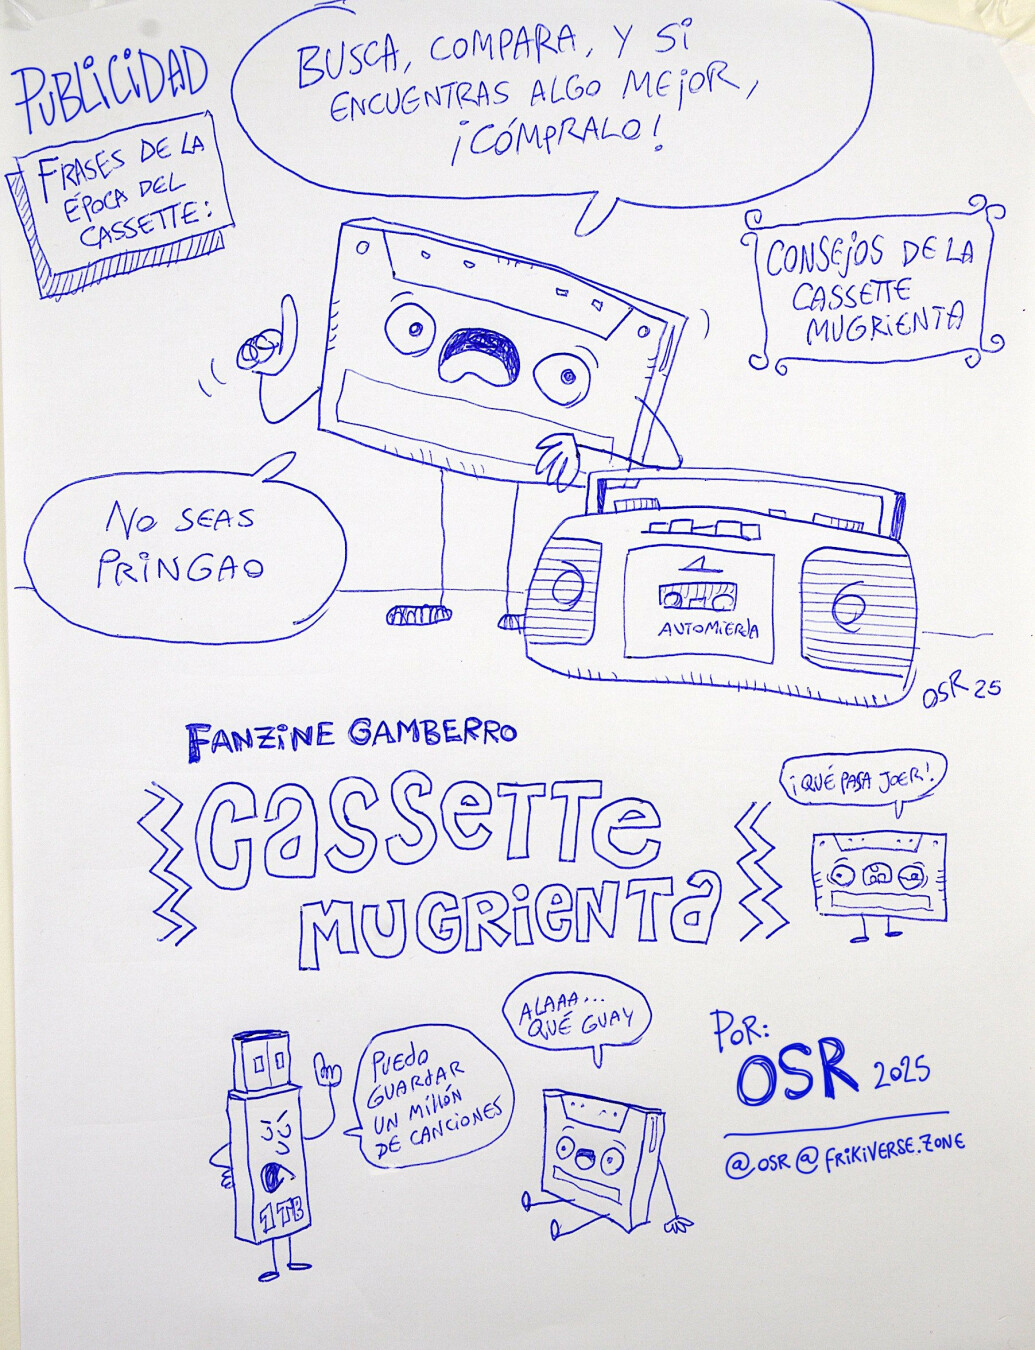 PUBLICIDAD
FRASES DE LA
ÉPOCA DEL
CASSETTE:
BUSCA, COMPARA, Y SI
ENCUENTRAS ALGO MEJOR,
¡CÓMPRALO!
CONSEJOS DE LA
CASSETTE
MUGRIENTA
NO SEAS
PRINGAO
1
AUTOMIERDA
OSR 25
FANZINE GAMBERRO
CASSETTE
MUGRIENTA
¡QUÉ PASA JOER!
PUEDO
GUARDAR
UN MILLÓN
DE CANCIONES
1TB
ALAAA...
QUÉ GUAY
POR:
OSR 2025
@OSR@FRIKIVERSE.ZONE